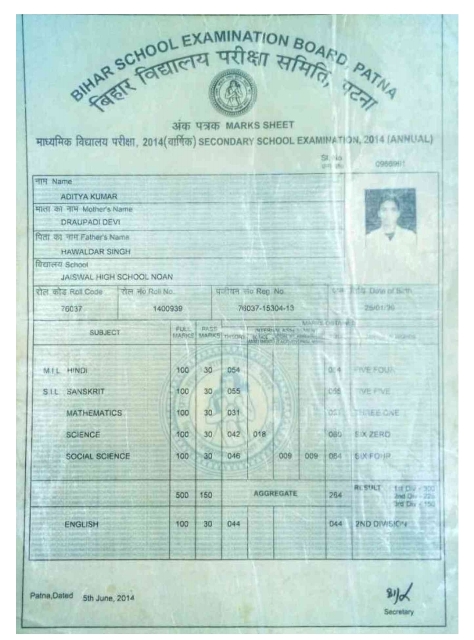 BIHAR SCHOOL EXAMINATION BOARD, PATNA
बिहार विद्यालय परीक्षा समिति, पटना
अंक पत्रक MARKS SHEET
माध्यमिक विद्यालय परीक्षा, 2014(वार्षिक) SECONDARY SCHOOL EXAMINATION, 2014 (ANNUAL)
Sl. No
नाम Name
ADITYA KUMAR
माता का नाम Mother's Name
DRAUPADI DEVI
पिता का नाम Father's Name
HAWALDAR SINGH
विद्यालय School
JAISWAL HIGH SCHOOL NOAN
रोल कोड Roll Code रोल नं० Roll No. पंजीयन सं० Reg. No. Date of Birth
76037 1400939 76037-15304-13
SUBJECT FULL MARKS PASS MARKS THEORY
M.I.L. HINDI 100 30 054 054 FIVE FOUR
S.I.L. SANSKRIT 100 30 055 055 FIVE FIVE
MATHEMATICS 100 30 031 031 THREE ONE
SCIENCE 100 30 042 018 060 SIX ZERO
SOCIAL SCIENCE 100 30 046 009 009 064 SIX FOUR
500 150 AGGREGATE 264 RESULT
ENGLISH 100 30 044 044 2ND DIVISION
Patna,Dated 5th June, 2014
Secretary